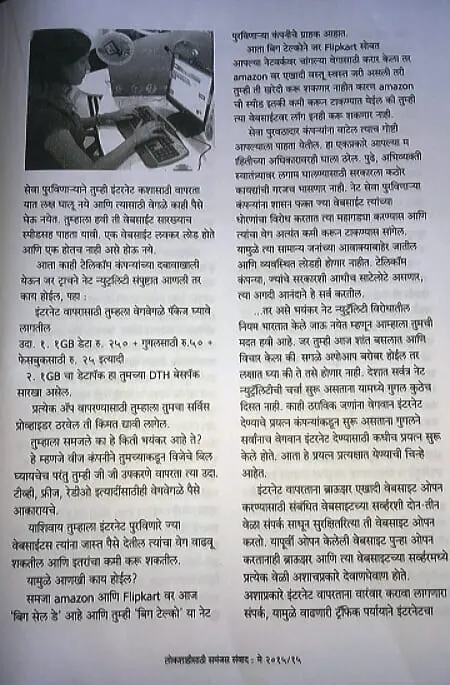 सेवा पुरविणाऱ्याने तुम्ही इंटरनेट कशासाठी वापरता
यात लक्ष घालू नये आणि त्यासाठी वेगळे काही पैसे
घेऊ नयेत. तुम्हाला हवी ती वेबसाईट सारख्याच
स्पीडसह पाहता यावी. एक वेबसाईट लवकर लोड होते
आणि एक होतच नाही असे होऊ नये.
आता काही टेलिकॉम कंपन्यांच्या दबावाखाली
येऊन जर ट्रायने नेट न्युट्रलिटी संपुष्टात आणली तर
काय होईल, पहा :
इंटरनेट वापरासाठी तुम्हाला वेगवेगळे पॅकेज घ्यावे
लागतील
उदा. १. १GB डेटा रु. २५० + गुगलसाठी रु.५० +
फेसबुकसाठी रु. २५ इत्यादी
२. १GB चा डेटापॅक हा तुमच्या DTH बेसपॅक
सारखा असेल.
प्रत्येक अ‍ॅप वापरण्यासाठी तुम्हाला तुमचा सर्विस
प्रोव्हाइडर ठरवेल ती किंमत द्यावी लागेल.
तुम्हाला समजले का हे किती भयंकर आहे ते?
हे म्हणजे वीज कंपनीने तुमच्याकडून विजेचे बिल
घ्यायचेच परंतु तुम्ही जी जी उपकरणे वापरता त्या उदा.
टीव्ही, फ्रीज, रेडीओ इत्यादींसाठीही वेगवेगळे पैसे
आकारायचे.
याशिवाय तुम्हाला इंटरनेट पुरविणारे ज्या
वेबसाईटस त्यांना जास्त पैसे देतील त्यांचा वेग वाढवू
शकतील आणि इतरांचा कमी करू शकतील.
यामुळे आणखी काय होईल?
समजा amazon आणि Flipkart वर आज
'बिग सेल डे' आहे आणि तुम्ही 'बिग टेल्को' या नेट
पुरविणाऱ्या कंपनीचे ग्राहक आहात.
आता बिग टेल्कोने जर Flipkart सोबत
आपल्या नेटवर्कवर चांगल्या वेगासाठी करार केला तर
amazon वर एखादी वस्तू स्वस्त जरी असली तरी
तुम्ही ती खरेदी करू शकणार नाहीत कारण amazon
ची स्पीड इतकी कमी करून टाकण्यात येईल की तुम्ही
त्या वेबसाईटवर लॉग इनही करू शकणार नाही.
सेवा पुरवठादार कंपन्यांना वाटेल त्याच गोष्टी
आपल्याला पाहता येतील. हा एकप्रकारे आपल्या म
हितीच्या अधिकारावरही घाला ठरेल. पुढे, अभिव्यक्ती
स्वातंत्र्यावर लगाम घालण्यासाठी सरकारला कठोर
कायद्यांची गरजच भासणार नाही. नेट सेवा पुरविणाऱ्या
कंपन्यांना शासन फक्त ज्या वेबसाईट त्यांच्या
धोरणांचा विरोध करतात त्या महागड्या करण्यास आणि
त्यांचा वेग अत्यंत कमी करून टाकण्यास सांगेल.
यामुळे त्या सामान्य जनांच्या आवाक्याबाहेर जातील
आणि व्यवस्थित लोडही होणार नाहीत. टेलिकॉम
कंपन्या, ज्यांचे सरकारशी आधीच साटेलोटे असणार,
त्या अगदी आनंदाने हे सर्व करतील.
...तर असे भयंकर नेट न्युट्रॅलिटी विरोधातील
नियम धारणात केले जाऊ नयेत म्हणून आम्हाला तुमची
मदत हवी आहे. जर तुम्ही आज शांत बसलात आणि
विचार केला की, सगळे अपोआप बरोबर होईल तर
लक्षात घ्या की ते तसे होणार नाही. देशात सर्वत्र नेट
न्युट्रॅलिटीची चर्चा सुरू असताना यामध्ये गुगल कुठेच
दिसत नाही. काही ठराविक जणांना वेगवान इंटरनेट
देण्याचे प्रयत्न कंपन्यांकडून सुरू असताना गुगलने
सर्वांनाच वेगवान इंटरनेट देण्यासाठी कधीच प्रयत्न सुरू
केले होते. आता हे प्रयत्न प्रत्यक्षात येण्याची चिन्हे
आहेत.
इंटरनेट वापरताना ब्राऊझर एखादी वेबसाइट ओपन
करण्यासाठी संबंधित वेबसाइटच्या सर्व्हरशी दोन-तीन
वेळा संपर्क साधून सुरक्षितरित्या ती वेबसाइट ओपन
करतो. यापूर्वी ओपन केलेली वेबसाइट पुन्हा ओपन
करतानाही ब्राऊझर आणि त्या वेबसाइटच्या सर्व्हरमध्ये
प्रत्येक वेळी अशाप्रकारे देवाणघेवाण होते.
अशाप्रकारे इंटरनेट वापरताना वारंवार करावा लागणारा
संपर्क, यामुळे वाढणारी ट्रॅफिक पर्यायाने इंटरनेटचा
लोकशाहीसाठी समंजस संवाद : मे २०१५/१५